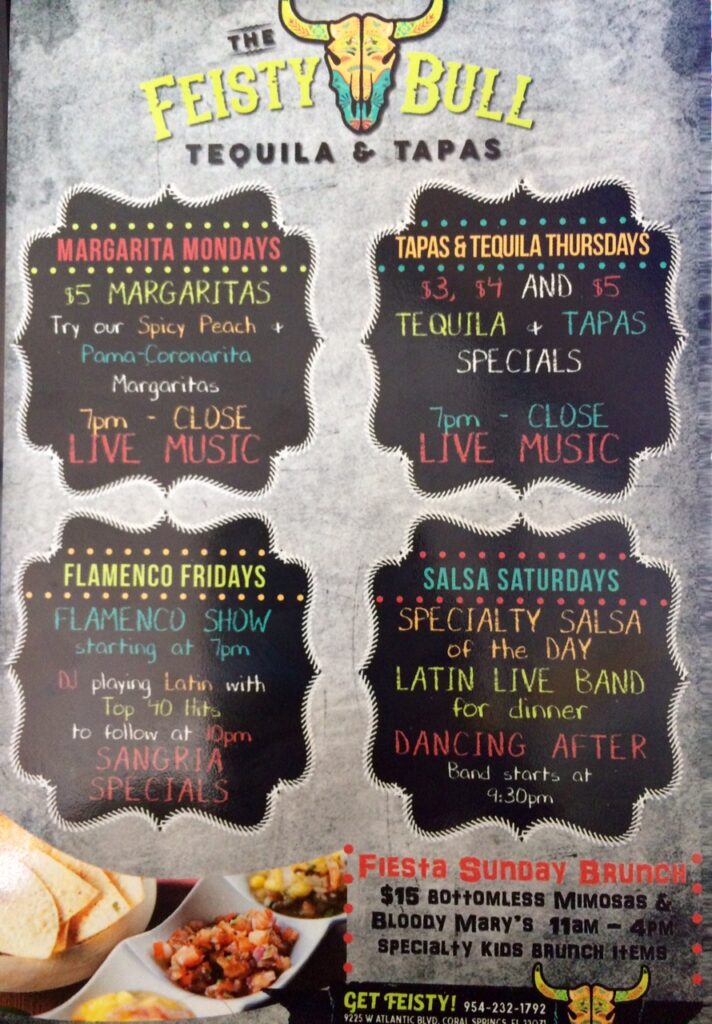 THE
FEISTY BULL
TEQUILA & TAPAS
MARGARITA MONDAYS
$5 MARGARITAS
Try our Spicy Peach +
Pama-Coronarita
Margaritas
7pm - CLOSE
LIVE MUSIC
TAPAS & TEQUILA THURSDAYS
$3, $4 AND $5
TEQUILA + TAPAS
SPECIALS
7pm - CLOSE
LIVE MUSIC
FLAMENCO FRIDAYS
FLAMENCO SHOW
starting at 7pm
DJ playing Latin with
Top 40 Hits
to follow at 10pm
SANGRIA
SPECIALS
SALSA SATURDAYS
SPECIALTY SALSA
of the DAY
LATIN LIVE BAND
for dinner
DANCING AFTER
Band starts at
9:30pm
FIESTA SUNDAY BRUNCH
$15 BOTTOMLESS MIMOSAS &
BLOODY MARY'S 11AM – 4PM
SPECIALTY KIDS BRUNCH ITEMS
GET FEISTY! 954-232-1792
9225 W ATLANTIC BLVD, CORAL SPRINGS, FL 33071